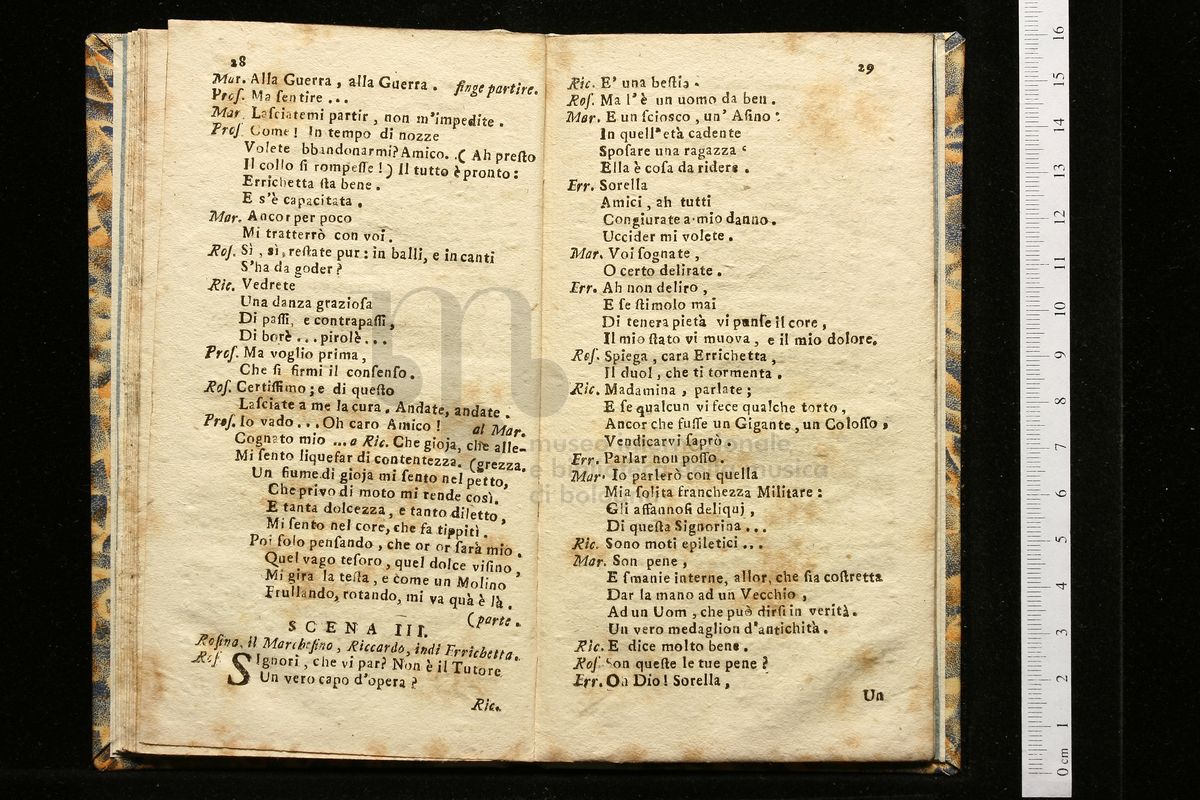 28
Mar. Alla Guerra, alla Guerra. finge partire.
Prof. Ma sentire ...
Mar. Lasciatemi partir, non m'impedite.
Prof. Come! In tempo di nozze
Volete bbandonarmi? Amico. .( Ah presto
Il collo si rompesse!) Il tutto è pronto:
Errichetta sta bene.
E s'è capacitata.
Mar. Ancor per poco
Mi tratterrò con voi.
Ros. Sì, sì, restate pur: in balli, e in canti
S'ha da goder?
Ric. Vedrete
Una danza graziosa
Di passi, e contrapassi,
Di borè ... pirolè ...
Prof. Ma voglio prima,
Che si firmi il consenso.
Ros. Certissimo; e di questo
Lasciate a me la cura. Andate, andate.
Prof. Io vado ... Oh caro Amico! al Mar.
Cognato mio ... a Ric. Che gioja, che alle-
Mi sento liquefar di contentezza. (grezza.
Un fiume di gioja mi sento nel petto,
Che privo di moto mi rende così.
E tanta dolcezza, e tanto diletto,
Mi sento nel core, che fa tippiti.
Poi solo pensando, che or or sarà mio.
Quel vago tesoro, quel dolce visino,
Mi gira la testa, e come un Molino
Frullando, rotando, mi va quà è là.
(parte.
SCENA III.
Rosina, il Marchesino, Riccardo, indi Errichetta.
Ros. Signori, che vi par? Non è il Tutore
Un vero capo d'opera?
Ric.
29
Ric. E' una bestia.
Ros. Ma l'è un uomo da ben.
Mar. E un sciosco, un' Asino:
In quell'età cadente
Sposare una ragazza
Ella è cosa da ridere.
Err. Sorella
Amici, ah tutti
Congiurate a mio danno.
Uccider mi volete.
Mar. Voi sognate,
O certo delirate.
Err. Ah non deliro,
E se stimolo mai
Di tenera pietà vi punse il core,
Il mio stato vi muova, e il mio dolore.
Ros. Spiega, cara Errichetta,
Il duol, che ti tormenta.
Ric. Madamina, parlate;
E se qualcun vi fece qualche torto,
Ancor che fusse un Gigante, un Colosso,
Vendicarvi saprò.
Err. Parlar non posso.
Mar. Io parlerò con quella
Mia solita franchezza Militare:
Gli affannosi deliquj,
Di questa Signorina ...
Ric. Sono moti epiletici ...
Mar. Son pene,
E smanie interne, allor, che sia costretta
Dar la mano ad un Vecchio,
Ad un Uom, che può dirsi in verità.
Un vero medaglion d'antichità.
Ric. E dice molto bene.
Ros. Son queste le tue pene?
Err. Oh Dio! Sorella,
Un